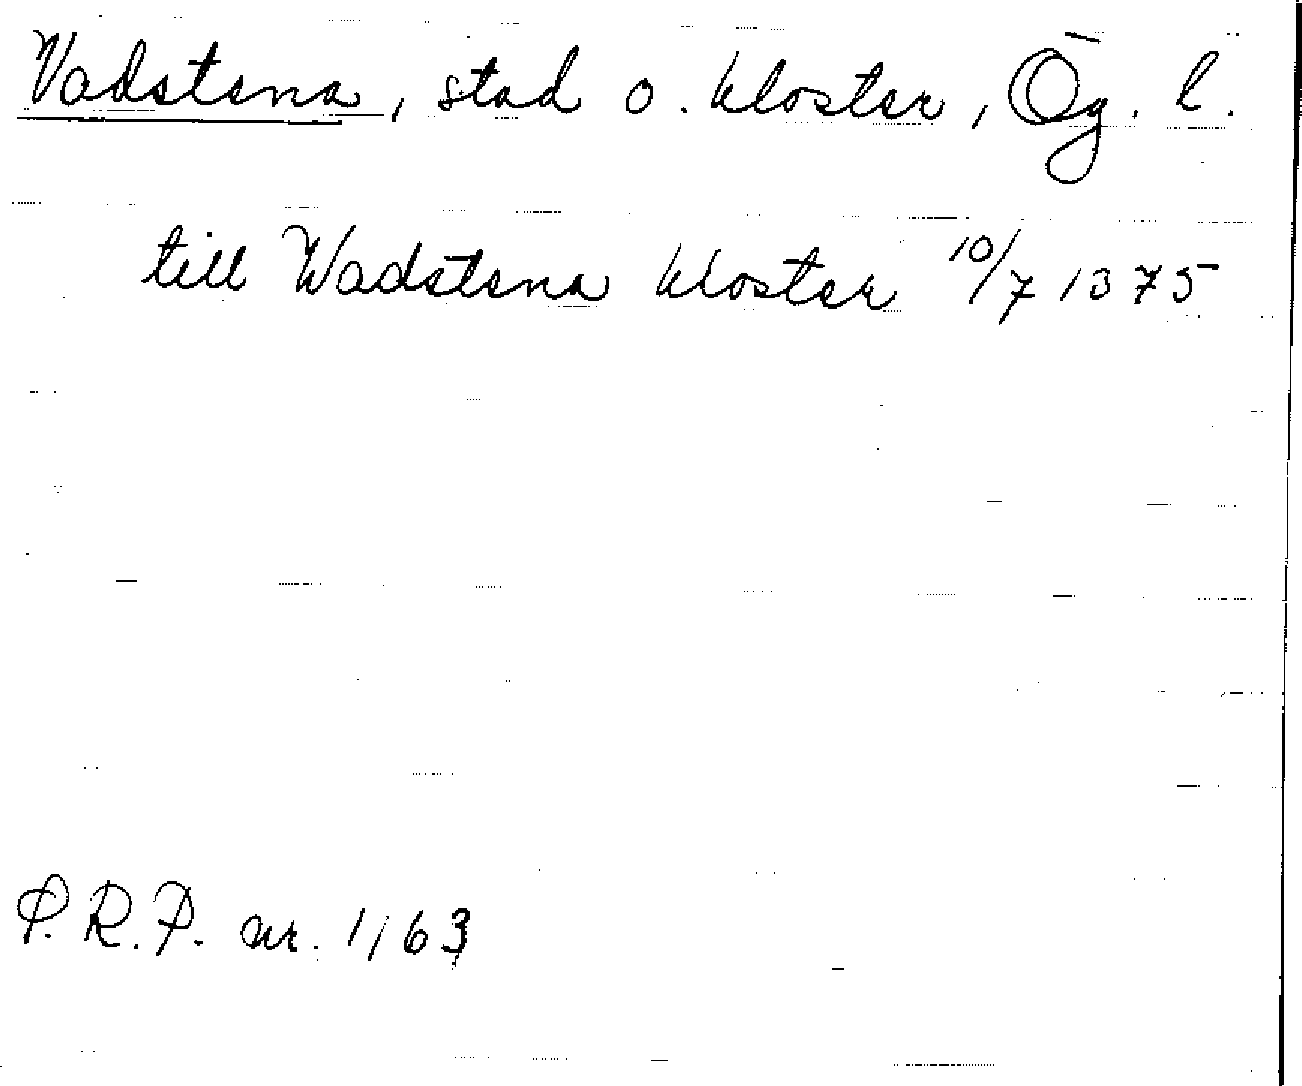 Vadstena, stad o. kloster, Ög. l.
till Wadstena kloster 10/7 1375
P.R.P. nr. 1163